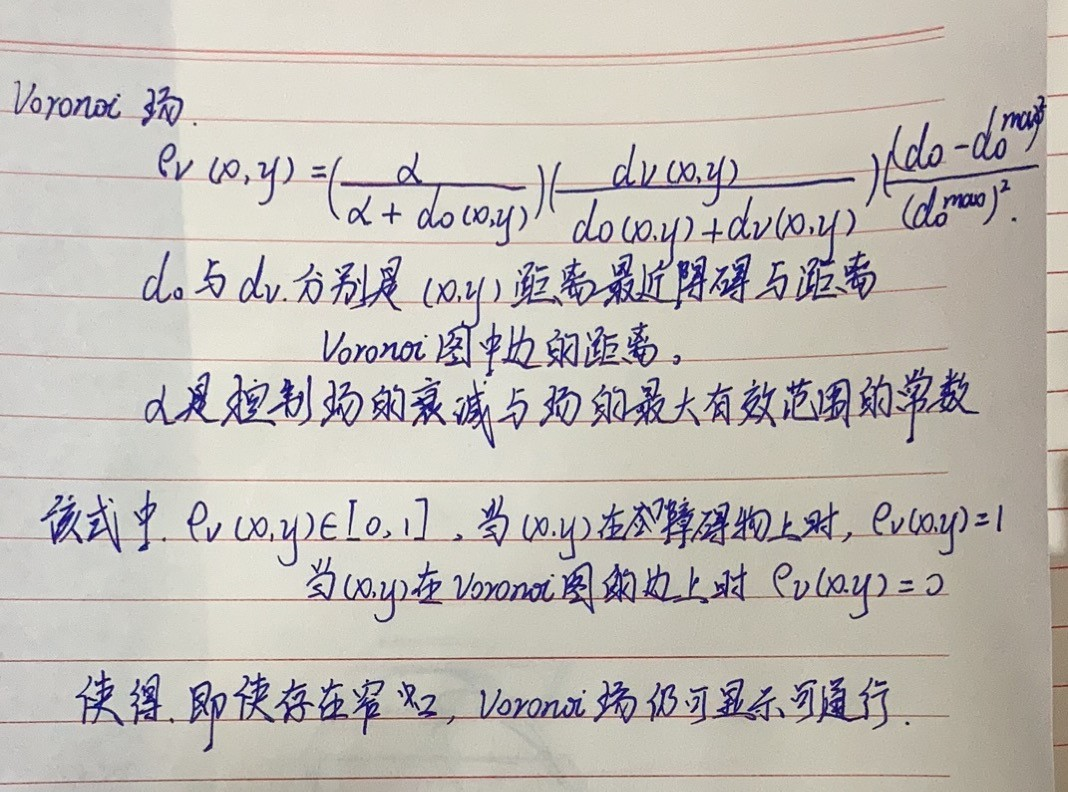 Voronoi 场.
ρv(x,y) = (α / (α + do(x,y))) (dv(x,y) / (do(x,y) + dv(x,y))) ((do - do^max)² / (do^max)²).
do 与 dv.分别是 (x,y) 距离最近障碍与距离
Voronoi图中边的距离。
α是控制场的衰减与场的最大有效范围的常数
该式中. ρv(x,y)∈[0,1]. 当(x,y)在障碍物上时, ρv(x,y)=1
当(x,y)在Voronoi图的边上时 ρv(x,y)=0
使得.即使存在窄口, Voronoi场仍可显示可通行.